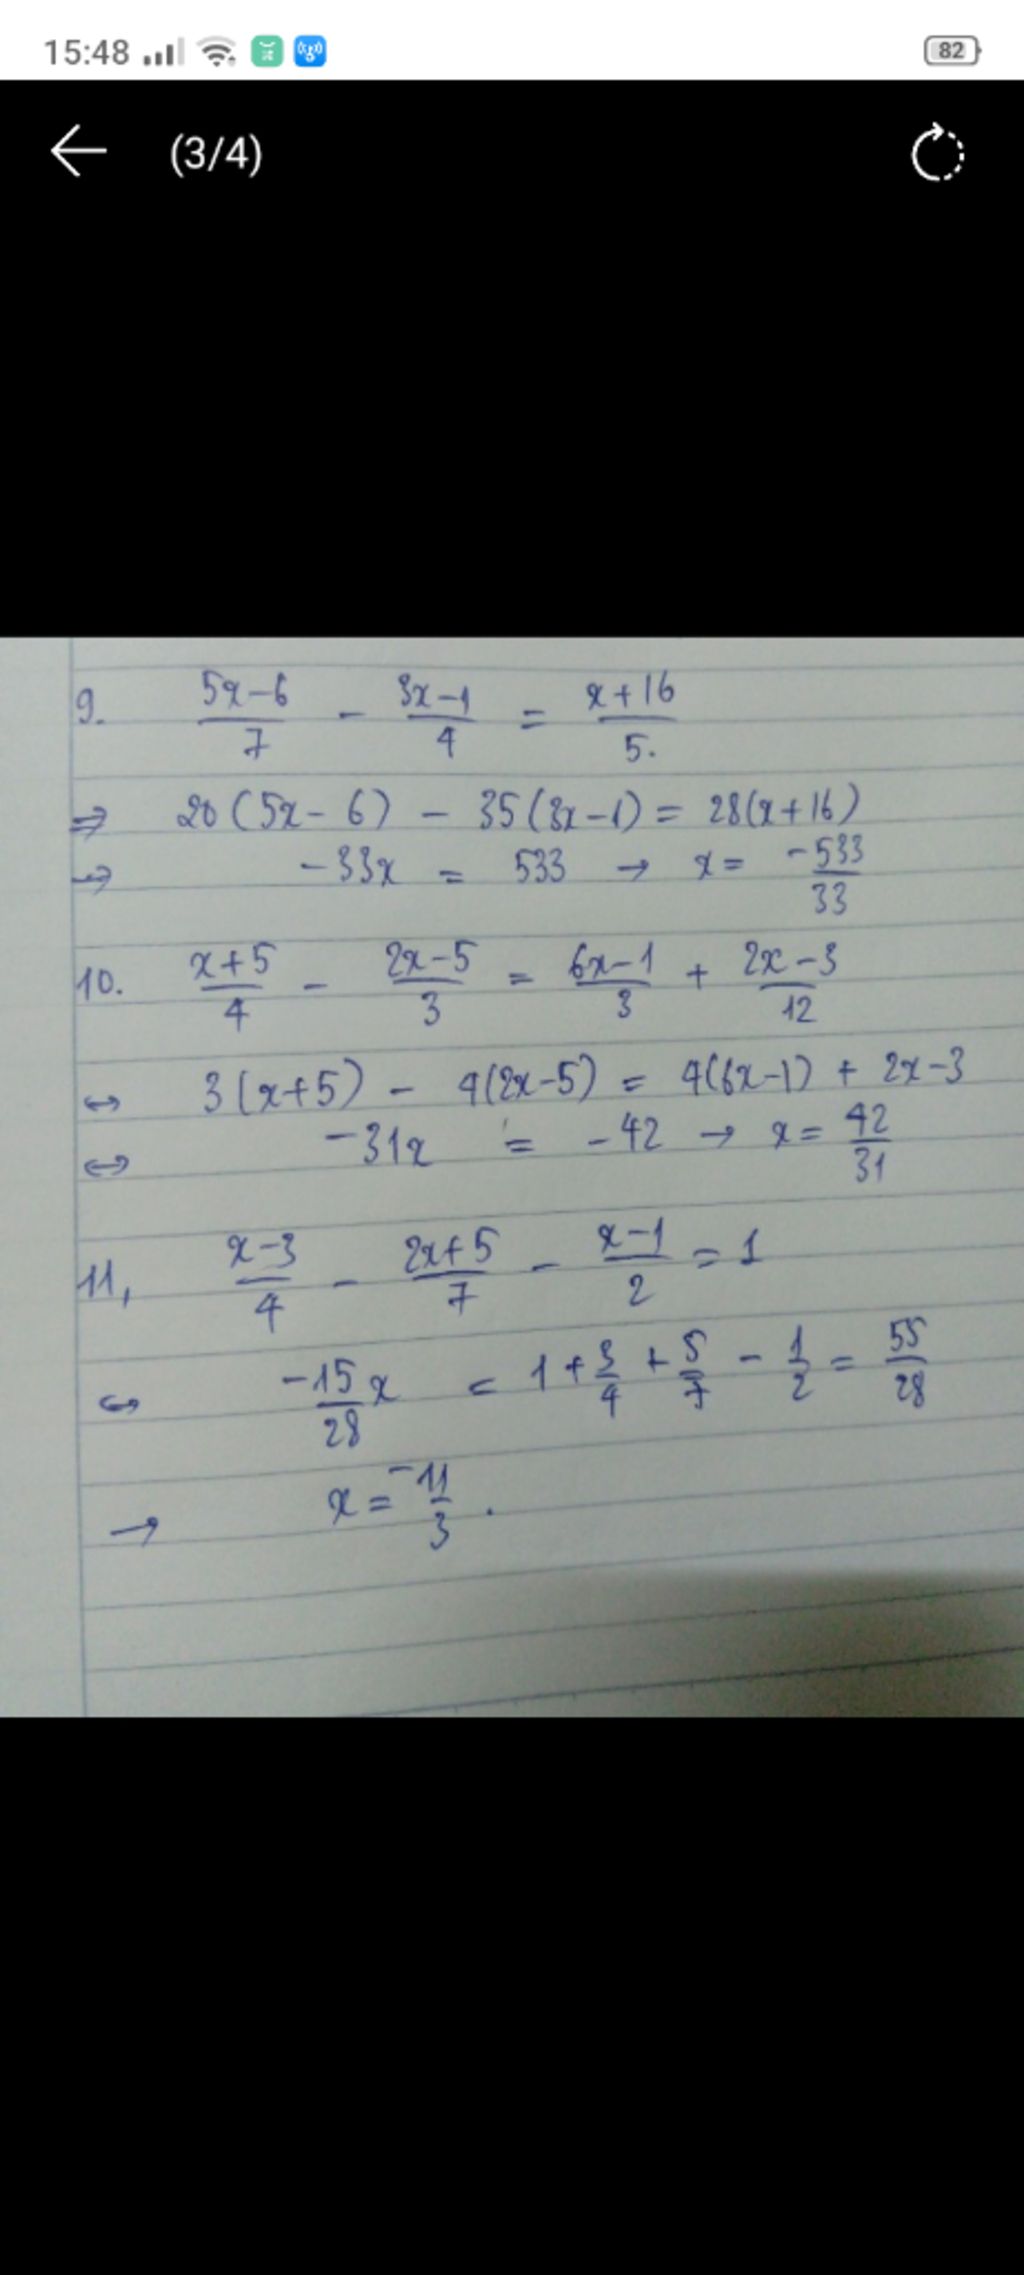 15:48 82
(3/4)
9. (5x-6)/7 - (3x-1)/4 = (x+16)/5.
⇒ 20(5x-6) - 35(3x-1) = 28(x+16)
→ -33x = 533 → x = -533/33
10. (x+5)/4 - (2x-5)/3 = (6x-1)/3 + (2x-3)/12
↔ 3(x+5) - 4(2x-5) = 4(6x-1) + 2x-3
↔ -31x = -42 → x = 42/31
11, (x-3)/4 - (2x+5)/7 - (x-1)/2 = 1
↔ -15/28 x = 1 + 3/4 + 5/7 - 1/2 = 55/28
→ x = -11/3.